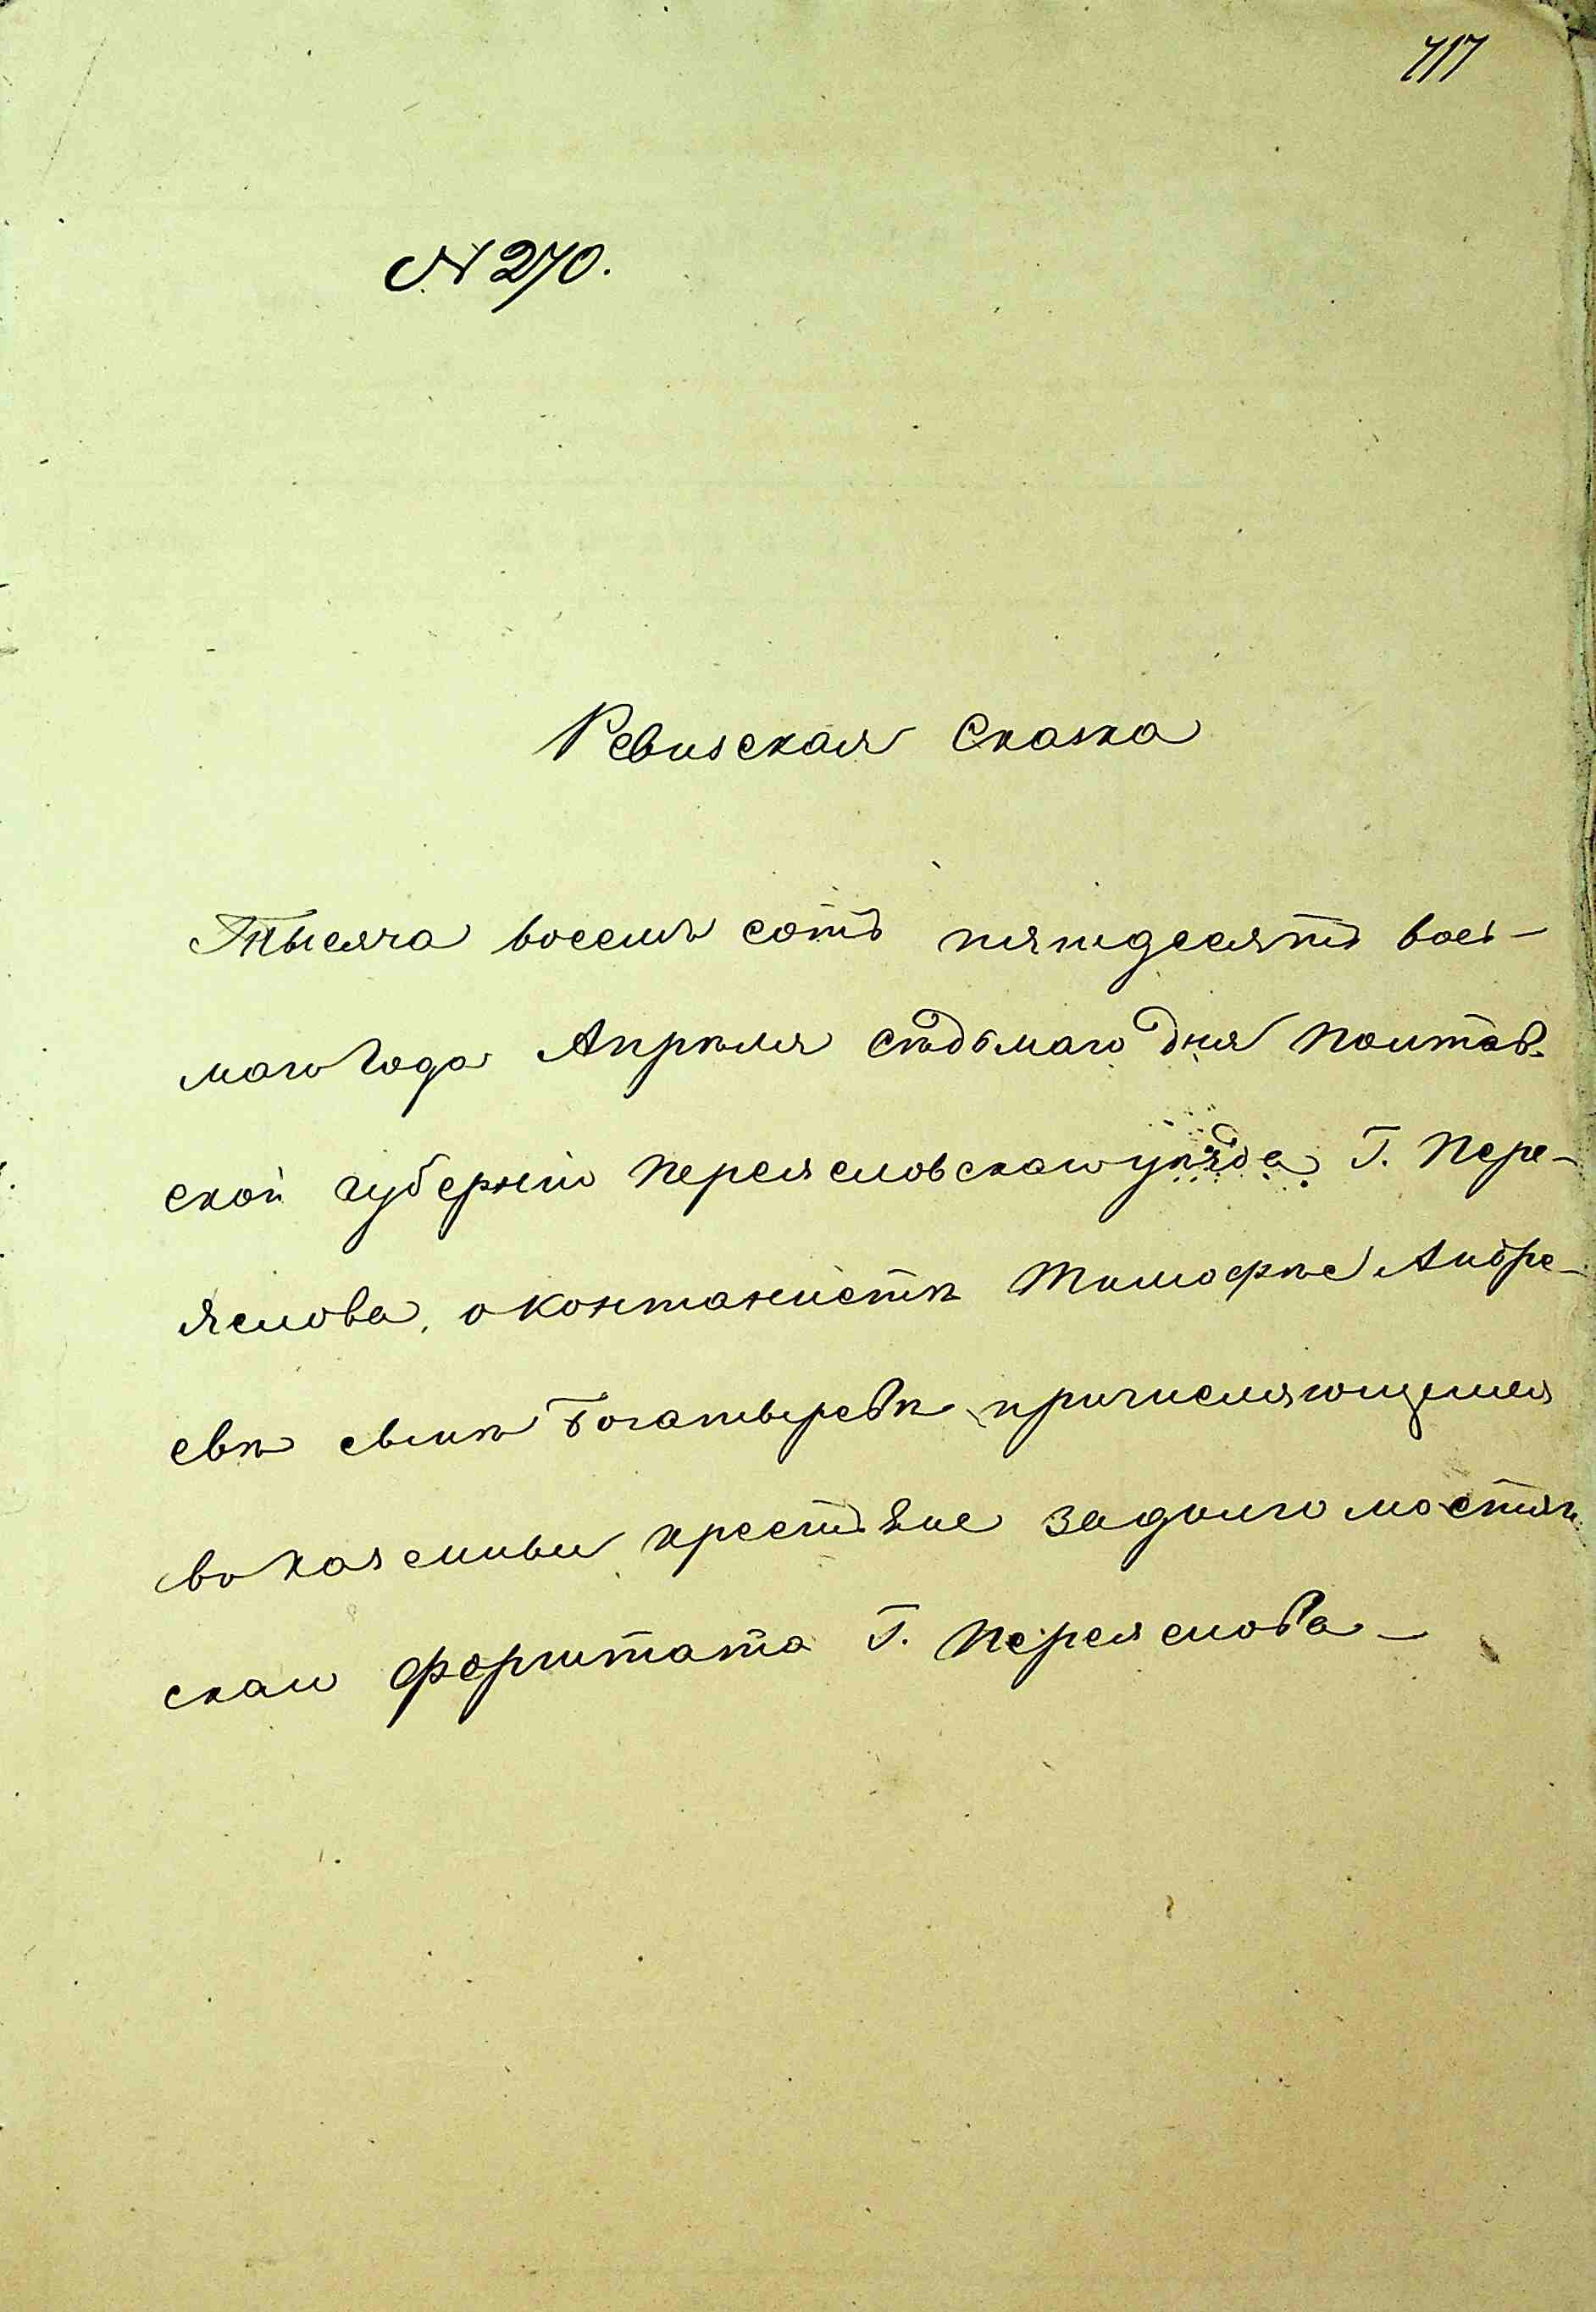 717
N 270.
Ревизская Сказка
Тысяча восемь сотъ пятидесятъ вось-
маго года Апрѣля сѣдьмаго дня Полтав-
ской губерніи Переясловскаго уѣзда Г. Пере-
яслова, о Контонистѣ Тимофѣе Андре-
евѣ сынѣ Богатыревѣ причисляющемся
во казенныи крестьяне Задолгомостян-
скаго Форштата Г. Переяслова -